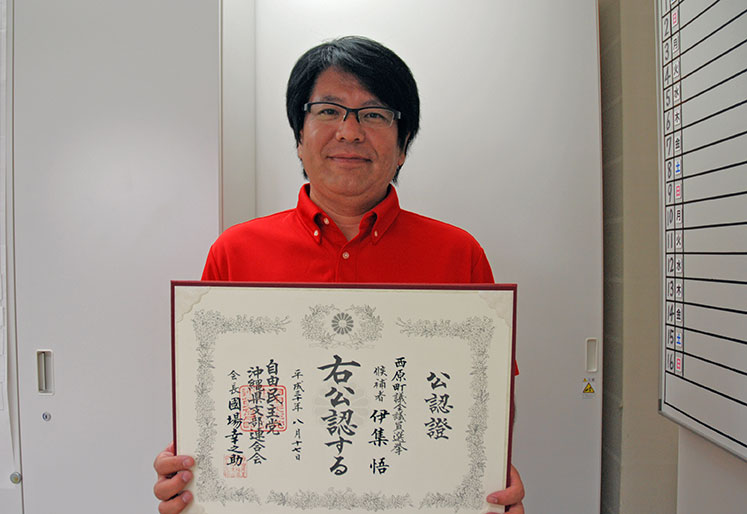 公認證
西原町議会議員選挙
候補者 伊集 悟
右公認する
平成三十年 八月十七日
自由民主党
沖縄県支部連合会
会長 國場幸之助
1 日
2 月
3 火
4 水
5 木
6 金
7 土
8 日
9 月
10 火
11 水
12 木
13 金
14 土
15 日
16